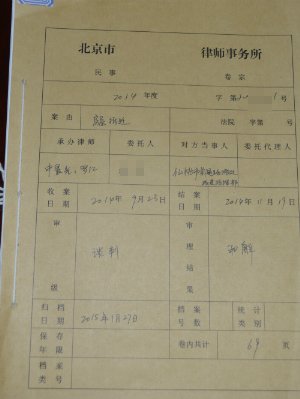 北京市 律师事务所
民事 卷宗
2014年度 字第 号
案由 拆迁 法院 字第 号
承办律师 委托人 对方当事人 委托代理人
收案日期 2014年9月23日 结案日期 2014年11月19日
审级 谈判 审理结果 和解
归档日期 2015年1月27日 档案号数 统计类别
保存年限 卷内共计 69 页
档案类号